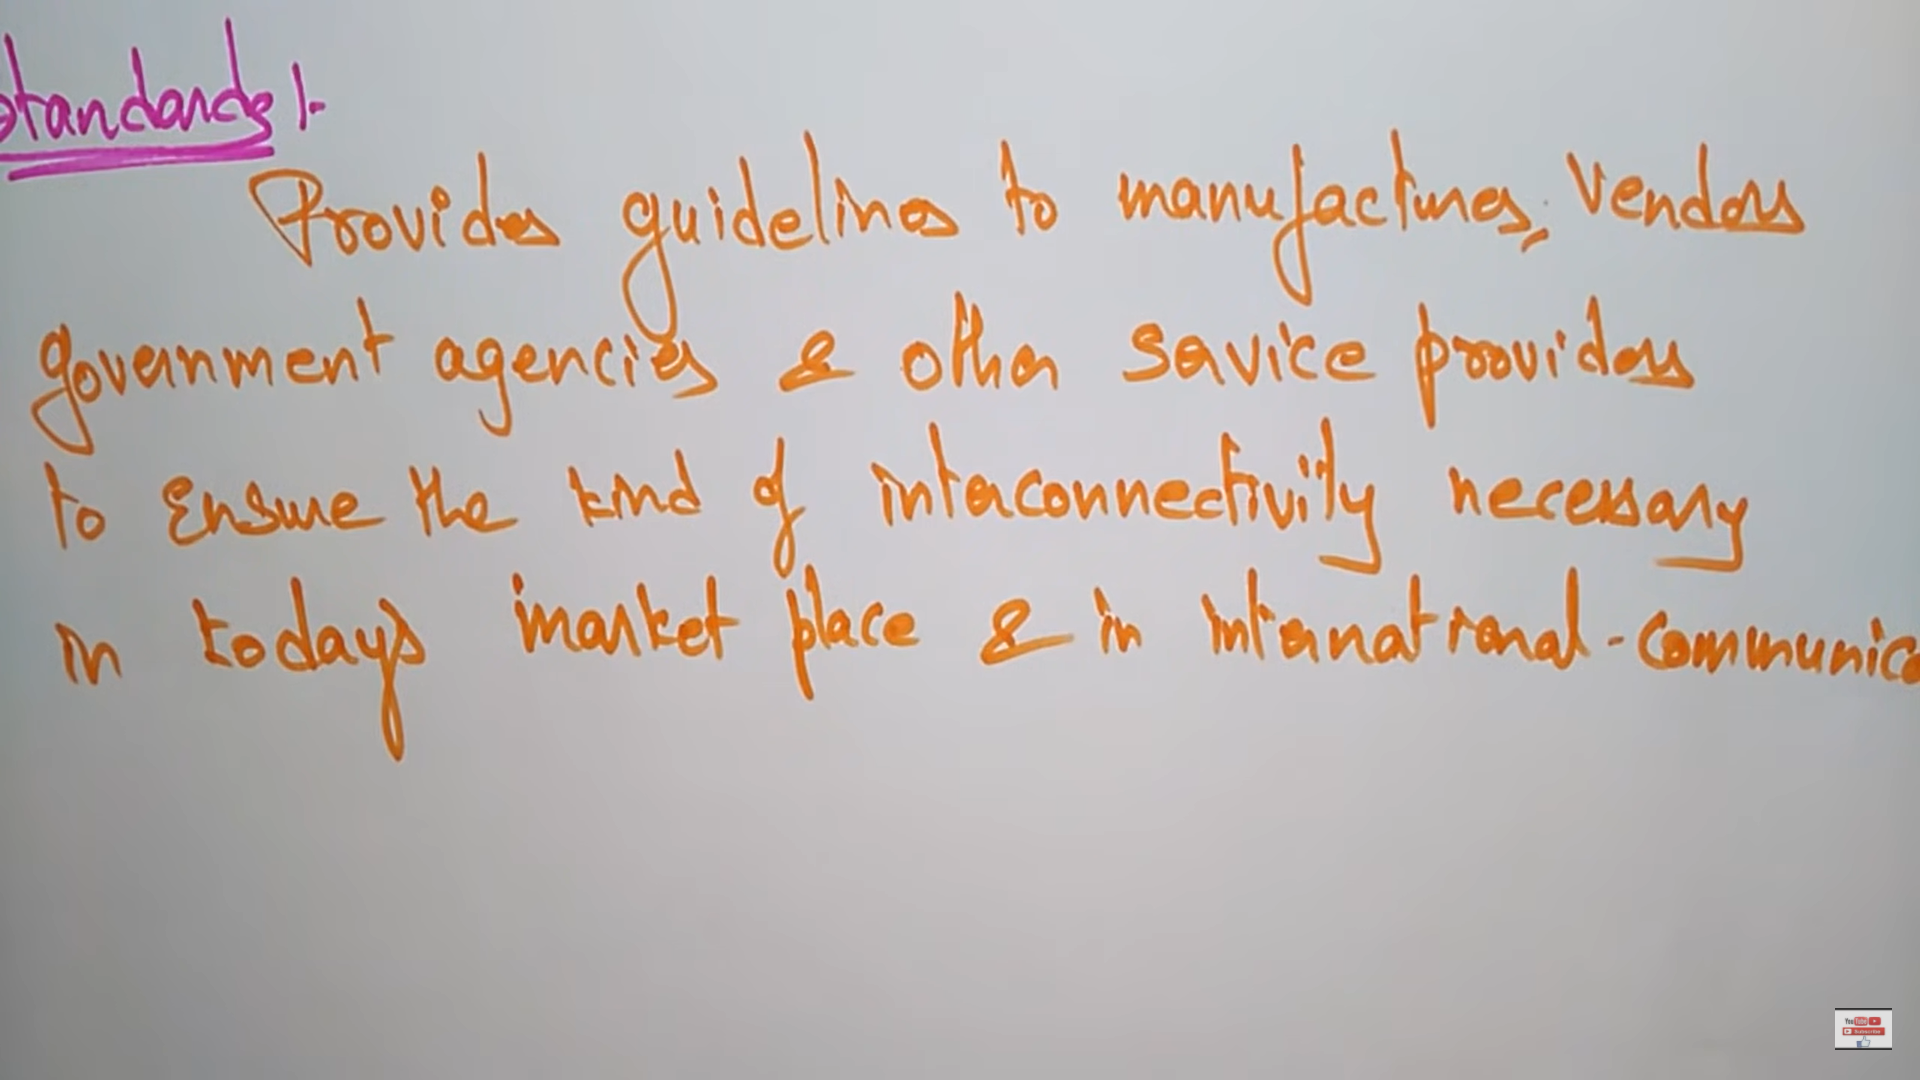 Standards :-
Provides guidelines to manufactures, vendors
government agencies & other service providers
to Ensure the kind of interconnectivity necessary
in todays market place & in international-communica
YouTube
Subscribe